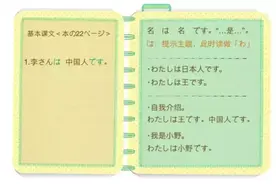 基本课文<本の22ページ>
1.李さんは 中国人です。
名 は 名 です。"…是…"。
は 提示主题，此时读做「わ」
・わたしは日本人です。
・わたしは王です。
・自我介绍。
わたしは王です。中国人です。
・我是小野。
わたしは小野です。